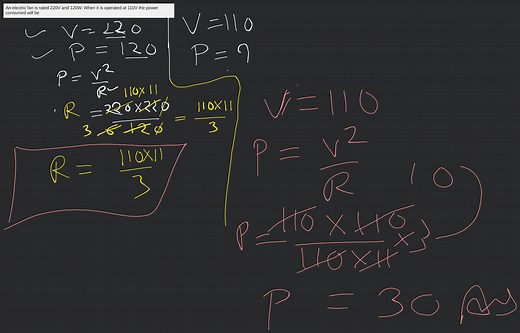 An electric fan is rated 220V and 120W. When it is operated at 110V the power
consumed will be
V = 220
P = 120
P = V²
R
110X11
R = 220X220
3 6 120
= 110X11
3
R = 110X11
3
V = 110
P = ?
V = 110
P = V²
R
10
P = 110 X 110 X 3
110 X 11
P = 30 Ans